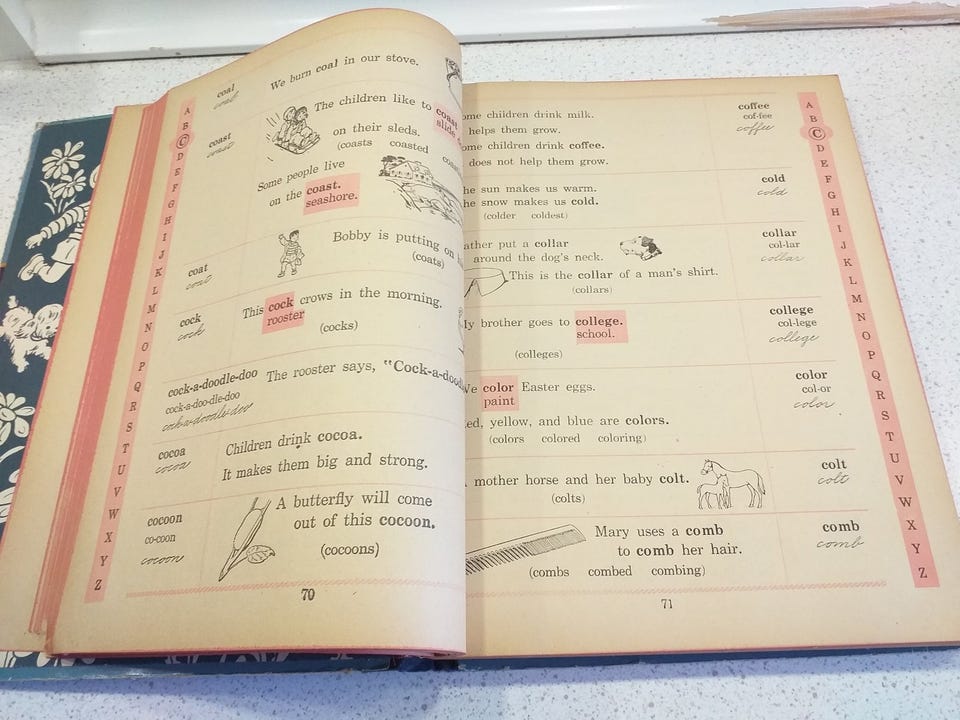 A
B
C
D
E
F
G
H
I
J
K
L
M
N
O
P
Q
R
S
T
U
V
W
X
Y
Z
coal
coal
We burn coal in our stove.
coast
coast
The children like to coast
slide
on their sleds.
(coasts coasted
Some people live
on the coast.
seashore.
coat
coat
Bobby is putting on
(coats)
cock
cock
This cock crows in the morning.
rooster
(cocks)
cock-a-doodle-doo
cock-a-doo-dle-doo
cock-a-doodle-doo
The rooster says, "Cock-a-dood
cocoa
cocoa
Children drink cocoa.
It makes them big and strong.
cocoon
co-coon
cocoon
A butterfly will come
out of this cocoon.
(cocoons)
70
ome children drink milk.
helps them grow.
ome children drink coffee.
does not help them grow.
coffee
cof-fee
coffee
he sun makes us warm.
he snow makes us cold.
(colder coldest)
cold
cold
ather put a collar
around the dog's neck.
This is the collar of a man's shirt.
(collars)
collar
col-lar
collar
My brother goes to college.
school.
(colleges)
college
col-lege
college
We color Easter eggs.
paint
ed, yellow, and blue are colors.
(colors colored coloring)
color
col-or
color
mother horse and her baby colt.
(colts)
colt
colt
Mary uses a comb
to comb her hair.
(combs combed combing)
comb
comb
71
A
B
C
D
E
F
G
H
I
J
K
L
M
N
O
P
Q
R
S
T
U
V
W
X
Y
Z